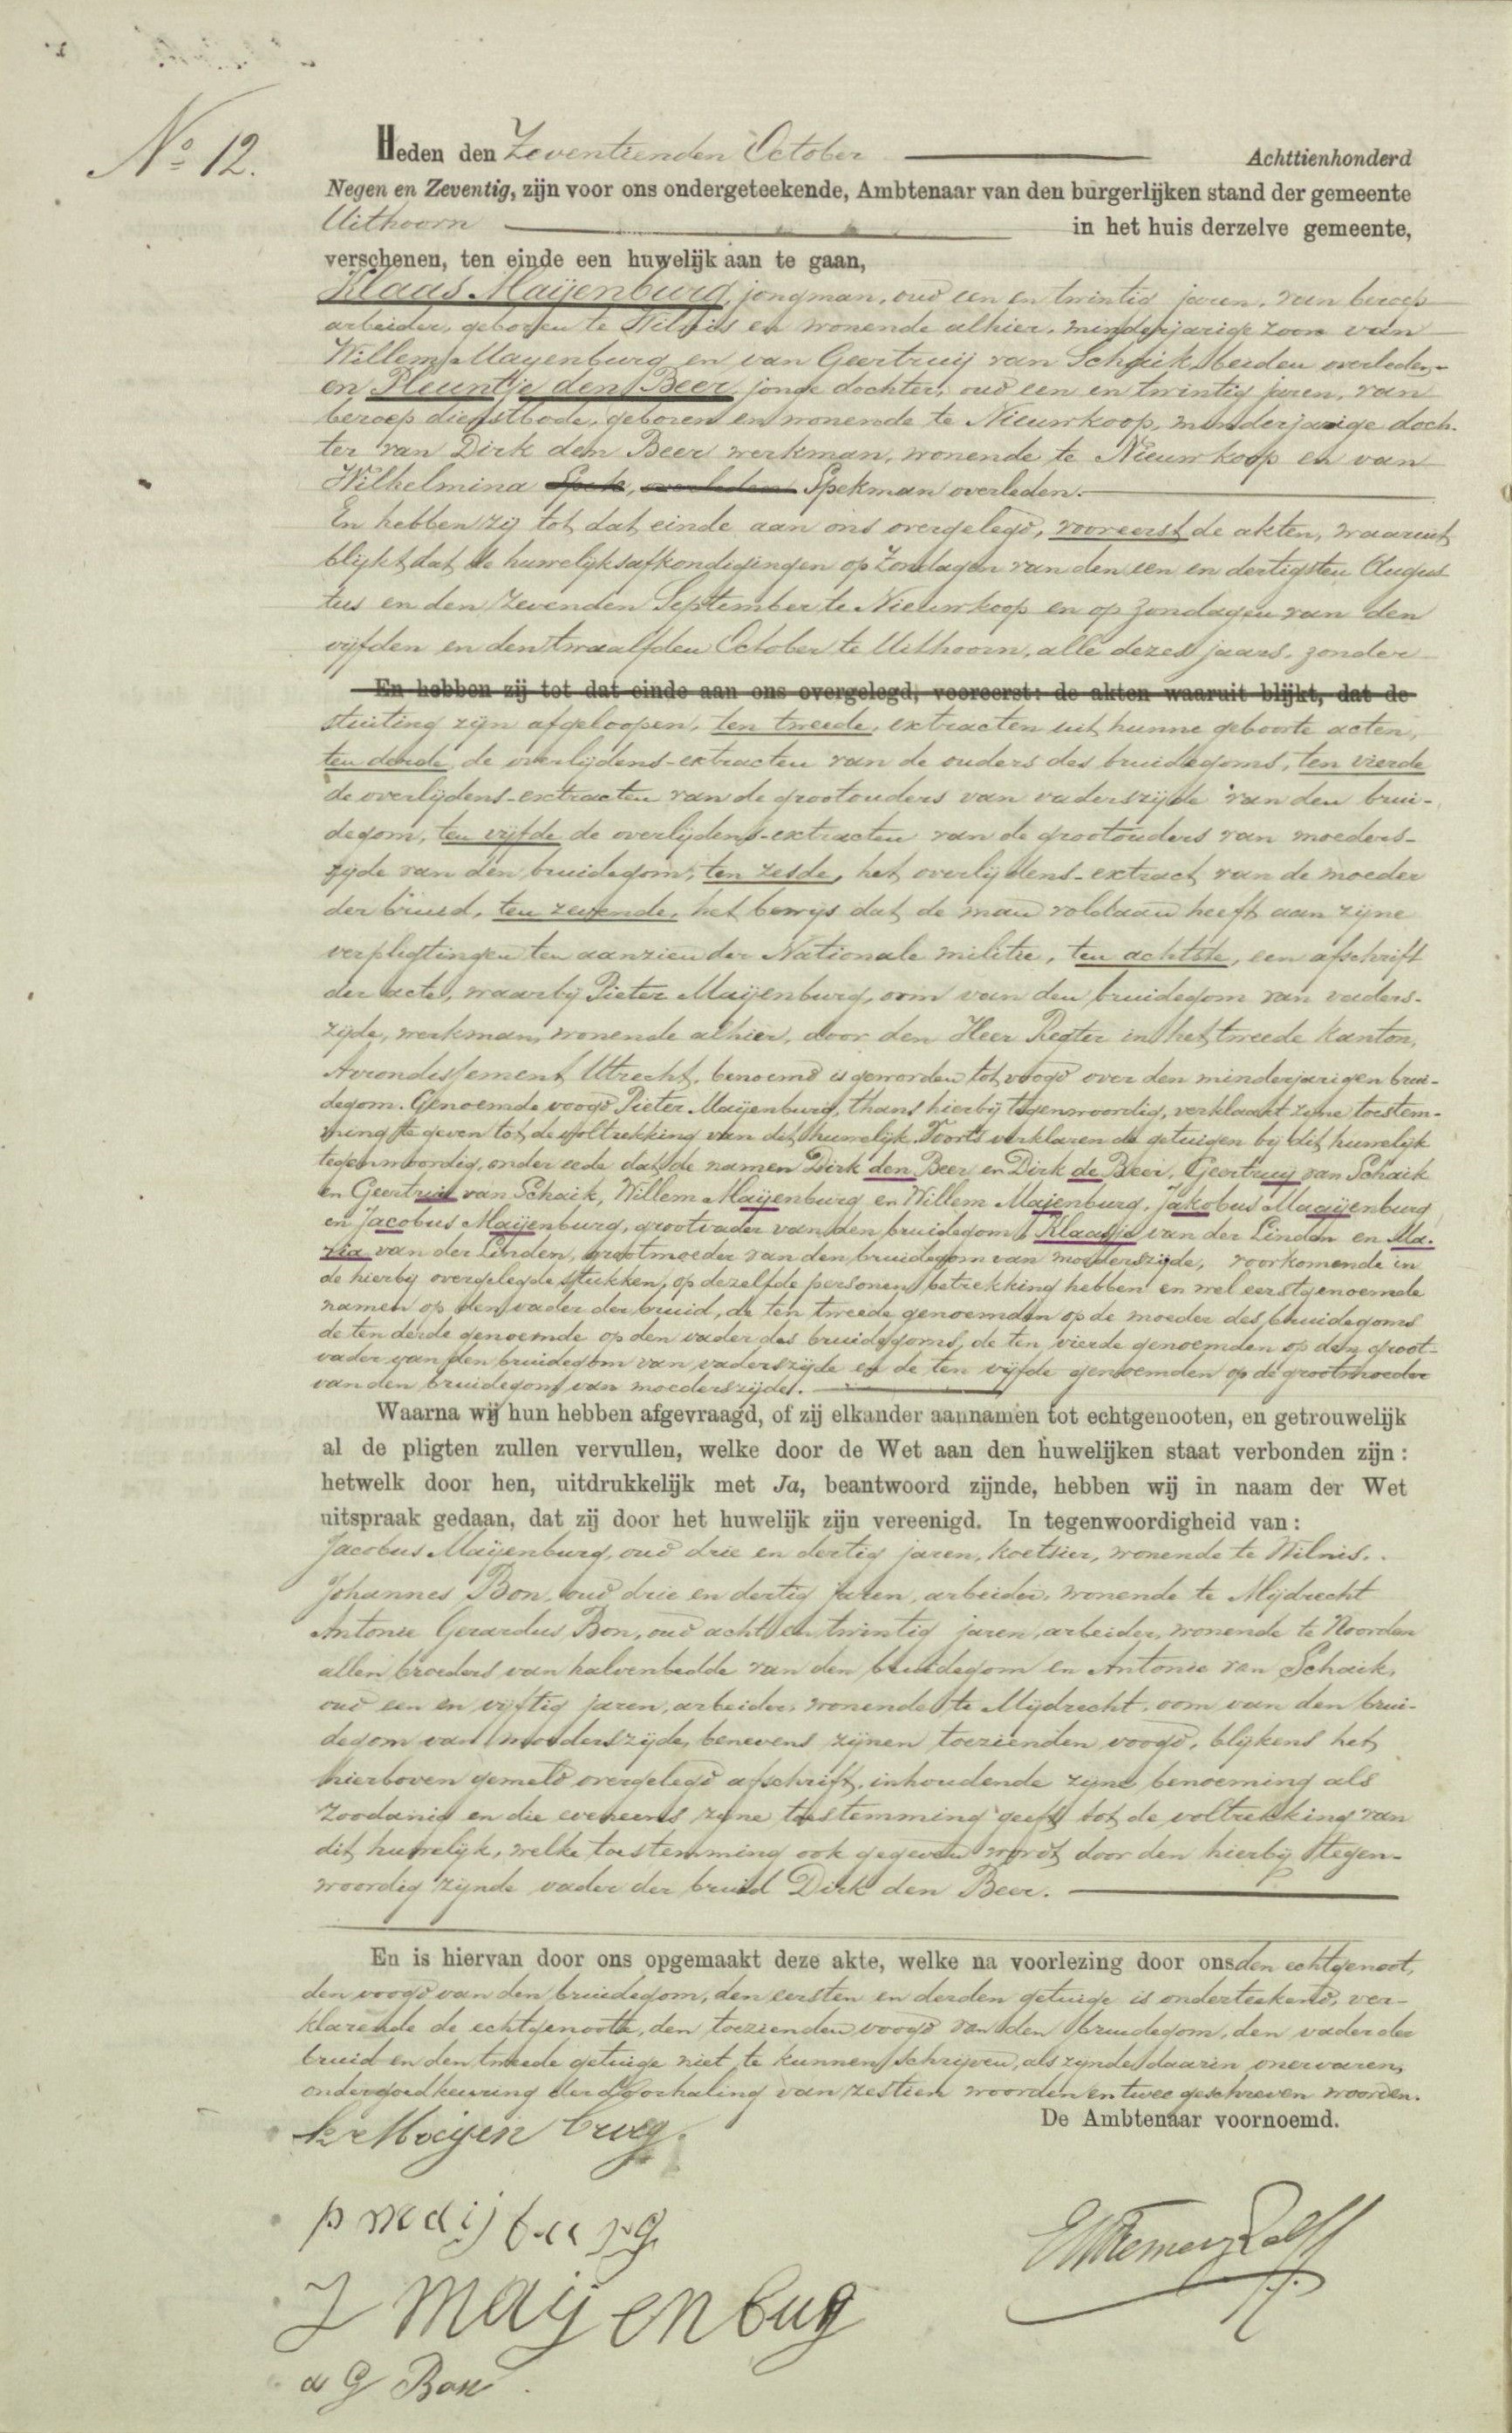 No 12.
Heden den Zeventienden October Achttienhonderd
Negen en Zeventig, zijn voor ons ondergeteekende, Ambtenaar van den burgerlijken stand der gemeente
Uithoorn in het huis derzelve gemeente,
verschenen, ten einde een huwelijk aan te gaan,
Klaas Maijenburg, jongman, oud een en twintig jaren, van beroep
arbeider, geboren te Wilnis en wonende alhier, minderjarige zoon van
Willem Mayenburg en van Geertruij van Schaik, beiden overleden,
en Pleuntje den Beer, jonge dochter, oud een en twintig jaren, van
beroep dienstbode, geboren en wonende te Nieuwkoop, minderjarige doch-
ter van Dirk den Beer werkman, wonende te Nieuwkoop en van
Wilhelmina Spek, overleden Spekman overleden.
En hebben zij tot dat einde aan ons overgelegd, vooreerst de akten, waaruit
blijkt dat de huwelijksafkondigingen op Zondagen van den een en dertigsten Augus
tus en den Zevenden September te Nieuwkoop en op Zondagen van den
vijfden en den twaalfden October te Uithoorn, alle dezes jaars, zonder
En hebben zij tot dat einde aan ons overgelegd; vooreerst: de akten waaruit blijkt, dat de
stuiting zijn afgeloopen, ten tweede, extracten uit hunne geboorte acten,
ten derde, de overlijdens-extracten van de ouders des bruidegoms, ten vierde
de overlijdens-extracten van de grootouders van vaderszijde van den brui-
degom, ten vijfde de overlijdens-extracten van de grootouders van moeders-
zijde van den bruidegom, ten zesde, het overlijdens-extract van de moeder
der bruid, ten zevende, het bewijs dat de man voldaan heeft aan zijne
verpligtingen ten aanzien der Nationale militie, ten achtste, een afschrift
der acte, waarbij Pieter Maijenburg, oom van den bruidegom van vaders-
zijde, werkman, wonende alhier, door den Heer Regter in het tweede kanton,
Arrondissement Utrecht, benoemd is geworden tot voogd over den minderjarigen brui-
degom. Genoemde voogd Pieter Maijenburg, thans hierbij tegenwoordig, verklaart zijne toestem-
ming te geven tot de voltrekking van dit huwelijk. Voorts verklaren de getuigen bij dit huwelijk
tegenwoordig, onder eede dat de namen Dirk den Beer en Dirk de Beer, Geertruij van Schaik
en Geertrui van Schaik, Willem Maijenburg en Willem Majenburg, Jakobus Maaijenburg
en Jacobus Maijenburg, grootvader van den bruidegom, Klaasje van der Linden en Ma-
ria van der Linden, grootmoeder van den bruidegom van moederszijde, voorkomende in
de hierbij overgelegde stukken, op dezelfde personen betrekking hebben en wel eerstgenoemde
namen op den vader der bruid, de ten tweede genoemden op de moeder des bruidegoms
de ten derde genoemde op den vader des bruidegoms, de ten vierde genoemden op den groot-
vader van den bruidegom van vaderszijde en de ten vijfde genoemden op de grootmoeder
van den bruidegom van moederszijde.
Waarna wij hun hebben afgevraagd, of zij elkander aannamen tot echtgenooten, en getrouwelijk
al de pligten zullen vervullen, welke door de Wet aan den huwelijken staat verbonden zijn:
hetwelk door hen, uitdrukkelijk met Ja, beantwoord zijnde, hebben wij in naam der Wet
uitspraak gedaan, dat zij door het huwelijk zijn vereenigd. In tegenwoordigheid van:
Jacobus Maijenburg, oud drie en dertig jaren, koetsier, wonende te Wilnis.
Johannes Bon, oud drie en dertig jaren, arbeider, wonende te Mijdrecht
Antonie Gerardus Bon, oud acht en twintig jaren, arbeider, wonende te Noorden
allen broeders van halvenbedde van den bruidegom en Antonie van Schaik,
oud een en vijftig jaren, arbeider, wonende te Mijdrecht, oom van den brui-
degom van moederszijde, benevens zijnen toezienden voogd, blijkens het
hierboven gemeld overgelegd afschrift, inhoudende zijne benoeming als
zoodanig en die eveneens zijne toestemming geeft tot de voltrekking van
dit huwelijk, welke toestemming ook gegeven wordt door den hierbij tegen-
woordig zijnde vader der bruid Dirk den Beer.
En is hiervan door ons opgemaakt deze akte, welke na voorlezing door ons den echtgenoot,
den voogd van den bruidegom, den eersten en derden getuige is onderteekend, ver-
klarende de echtgenoote, den toezienden voogd van den bruidegom, den vader der
bruid en den tweede getuige niet te kunnen schrijven, als zijnde daarin onervaren,
onder goedkeuring der doorhaling van zestien woorden en twee geschreven woorden.
De Ambtenaar voornoemd.
K Maijen burg.
p maijburg
J Mayenbug
a G Bon